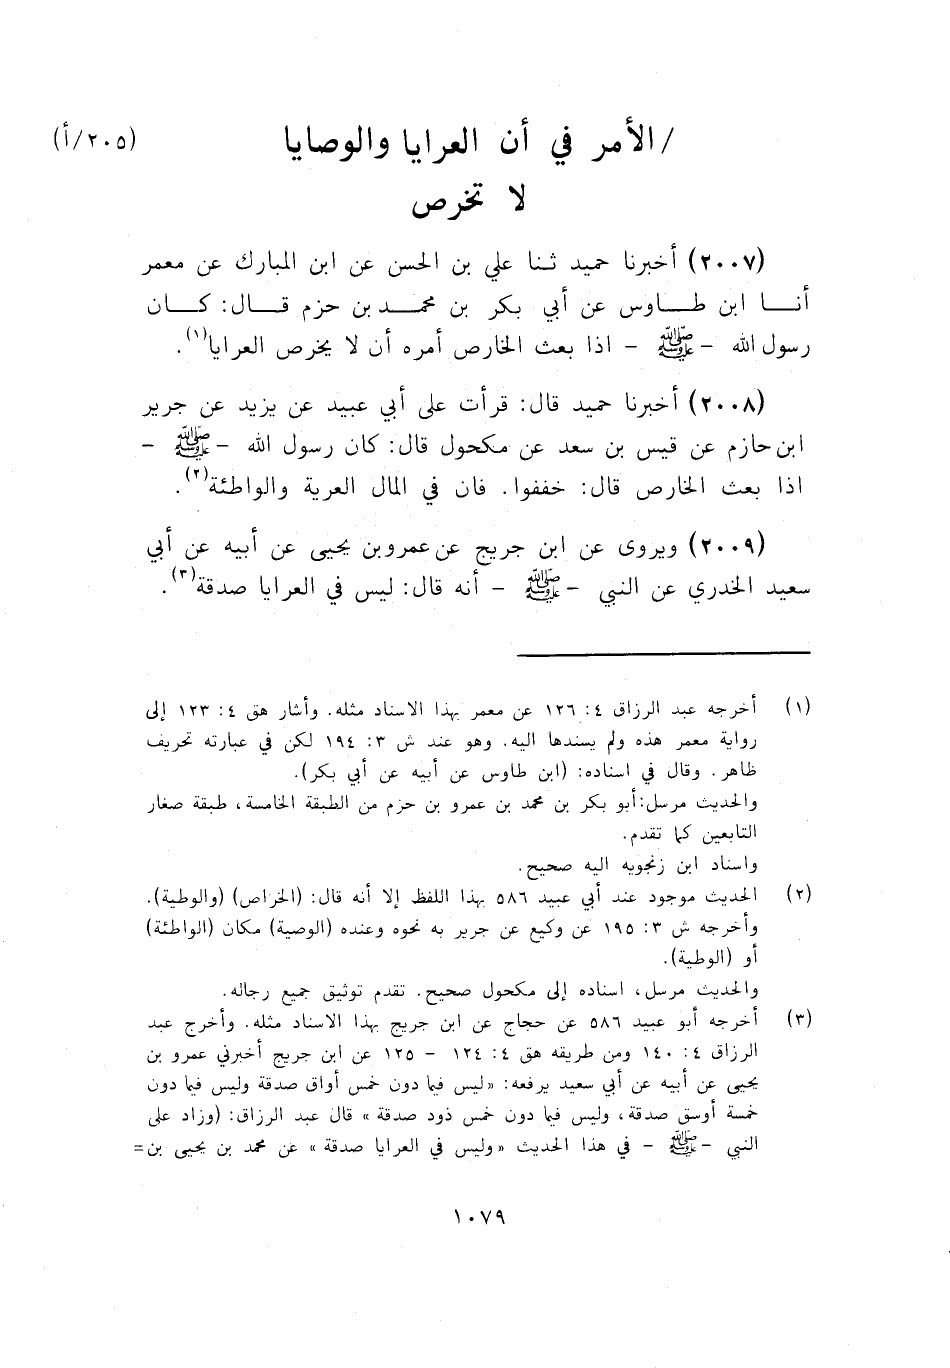 /الأمر في أن العرايا والوصايا (٢٠٥/أ)
لا تخرص
(٢٠٠٧) أخبرنا حميد ثنا علي بن الحسن عن ابن المبارك عن معمر
أنـــا ابن طـــاوس عن أبي بكر بن محمـــد بن حزم قـــال: كـــان
رسول الله - ﷺ - اذا بعث الخارص أمره أن لا يخرص العرايا(١).
(٢٠٠٨) أخبرنا حميد قال: قرأت على أبي عبيد عن يزيد عن جرير
ابن حازم عن قيس بن سعد عن مكحول قال: كان رسول الله - ﷺ -
اذا بعث الخارص قال: خففوا. فان في المال العرية والواطئة(٢).
(٢٠٠٩) ويروى عن ابن جريج عن عمرو بن يحيى عن أبيه عن أبي
سعيد الخدري عن النبي - ﷺ - أنه قال: ليس في العرايا صدقة(٣).
(١) أخرجه عبد الرزاق ٤: ١٢٦ عن معمر بهذا الاسناد مثله. وأشار هق ٤: ١٢٣ إلى
رواية معمر هذه ولم يسندها اليه. وهو عند ش ٣: ١٩٤ لكن في عبارته تحريف
ظاهر. وقال في اسناده: (ابن طاوس عن أبيه عن أبي بكر).
والحديث مرسل: أبو بكر بن محمد بن عمرو بن حزم من الطبقة الخامسة، طبقة صغار
التابعين كما تقدم.
واسناد ابن زنجويه اليه صحيح.
(٢) الحديث موجود عند أبي عبيد ٥٨٦ بهذا اللفظ إلا أنه قال: (الخراص) (والوطية).
وأخرجه ش ٣: ١٩٥ عن وكيع عن جرير به نحوه وعنده (الوصية) مكان (الواطئة)
أو (الوطية).
والحديث مرسل، اسناده إلى مكحول صحيح. تقدم توثيق جميع رجاله.
(٣) أخرجه أبو عبيد ٥٨٦ عن حجاج عن ابن جريج بهذا الاسناد مثله. وأخرج عبد
الرزاق ٤: ١٤٠ ومن طريقه هق ٤: ١٢٤ - ١٢٥ عن ابن جريج أخبرني عمرو بن
يحيى عن أبيه عن أبي سعيد يرفعه: «ليس فيما دون خمس أواق صدقة وليس فيما دون
خمسة أوسق صدقة، وليس فيما دون خمس ذود صدقة» قال عبد الرزاق: (وزاد على
النبي - ﷺ - في هذا الحديث «وليس في العرايا صدقة» عن محمد بن يحيى بن=
١٠٧٩